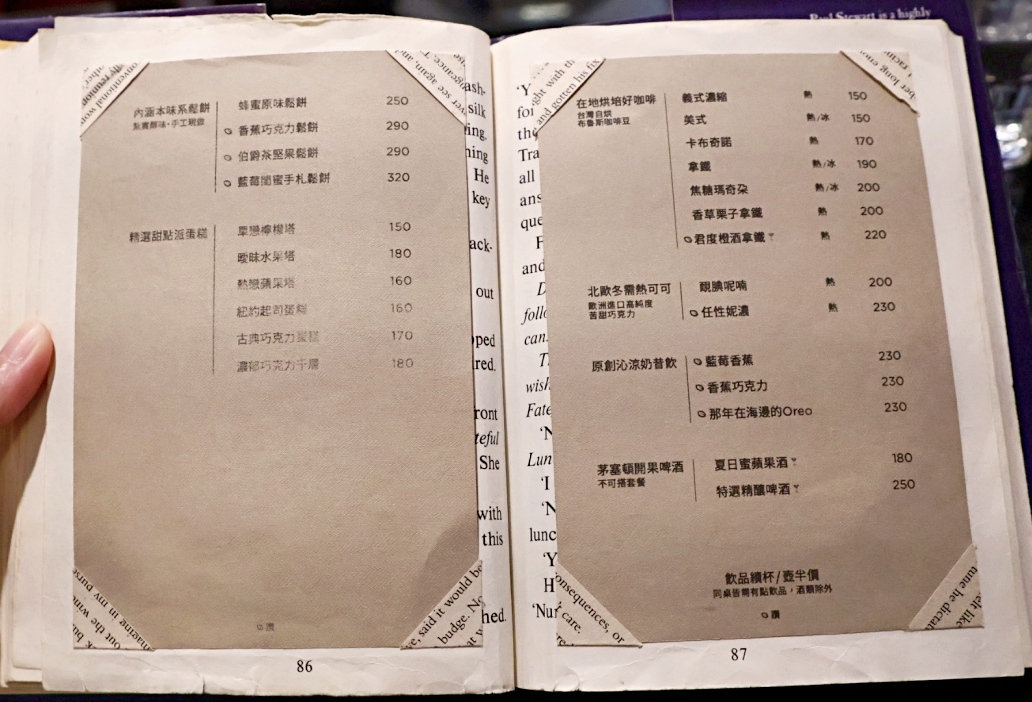 內涵本味系鬆餅
紮實原味·手工現做
蜂蜜原味鬆餅 250
香蕉巧克力鬆餅 290
伯爵茶堅果鬆餅 290
藍莓閨蜜手札鬆餅 320
精選甜點派蛋糕
單戀檸檬塔 150
曖昧水果塔 180
熱戀蘋果塔 160
紐約起司蛋糕 160
古典巧克力蛋糕 170
濃郁巧克力千層 180
讚
86
Paul Stewart is a highly
在地烘培好咖啡
台灣自烘
布魯斯咖啡豆
義式濃縮 熱 150
美式 熱/冰 150
卡布奇諾 熱 170
拿鐵 熱/冰 190
焦糖瑪奇朵 熱/冰 200
香草栗子拿鐵 熱 200
君度橙酒拿鐵 熱 220
北歐冬需熱可可
歐洲進口高純度
苦甜巧克力
靦腆呢喃 熱 200
任性妮濃 熱 230
原創沁涼奶昔飲
藍莓香蕉 230
香蕉巧克力 230
那年在海邊的Oreo 230
茅塞頓開果啤酒
不可搭套餐
夏日蜜蘋果酒 180
特選精釀啤酒 250
飲品續杯/壺半價
同桌皆需有點飲品，酒類除外
讚
87